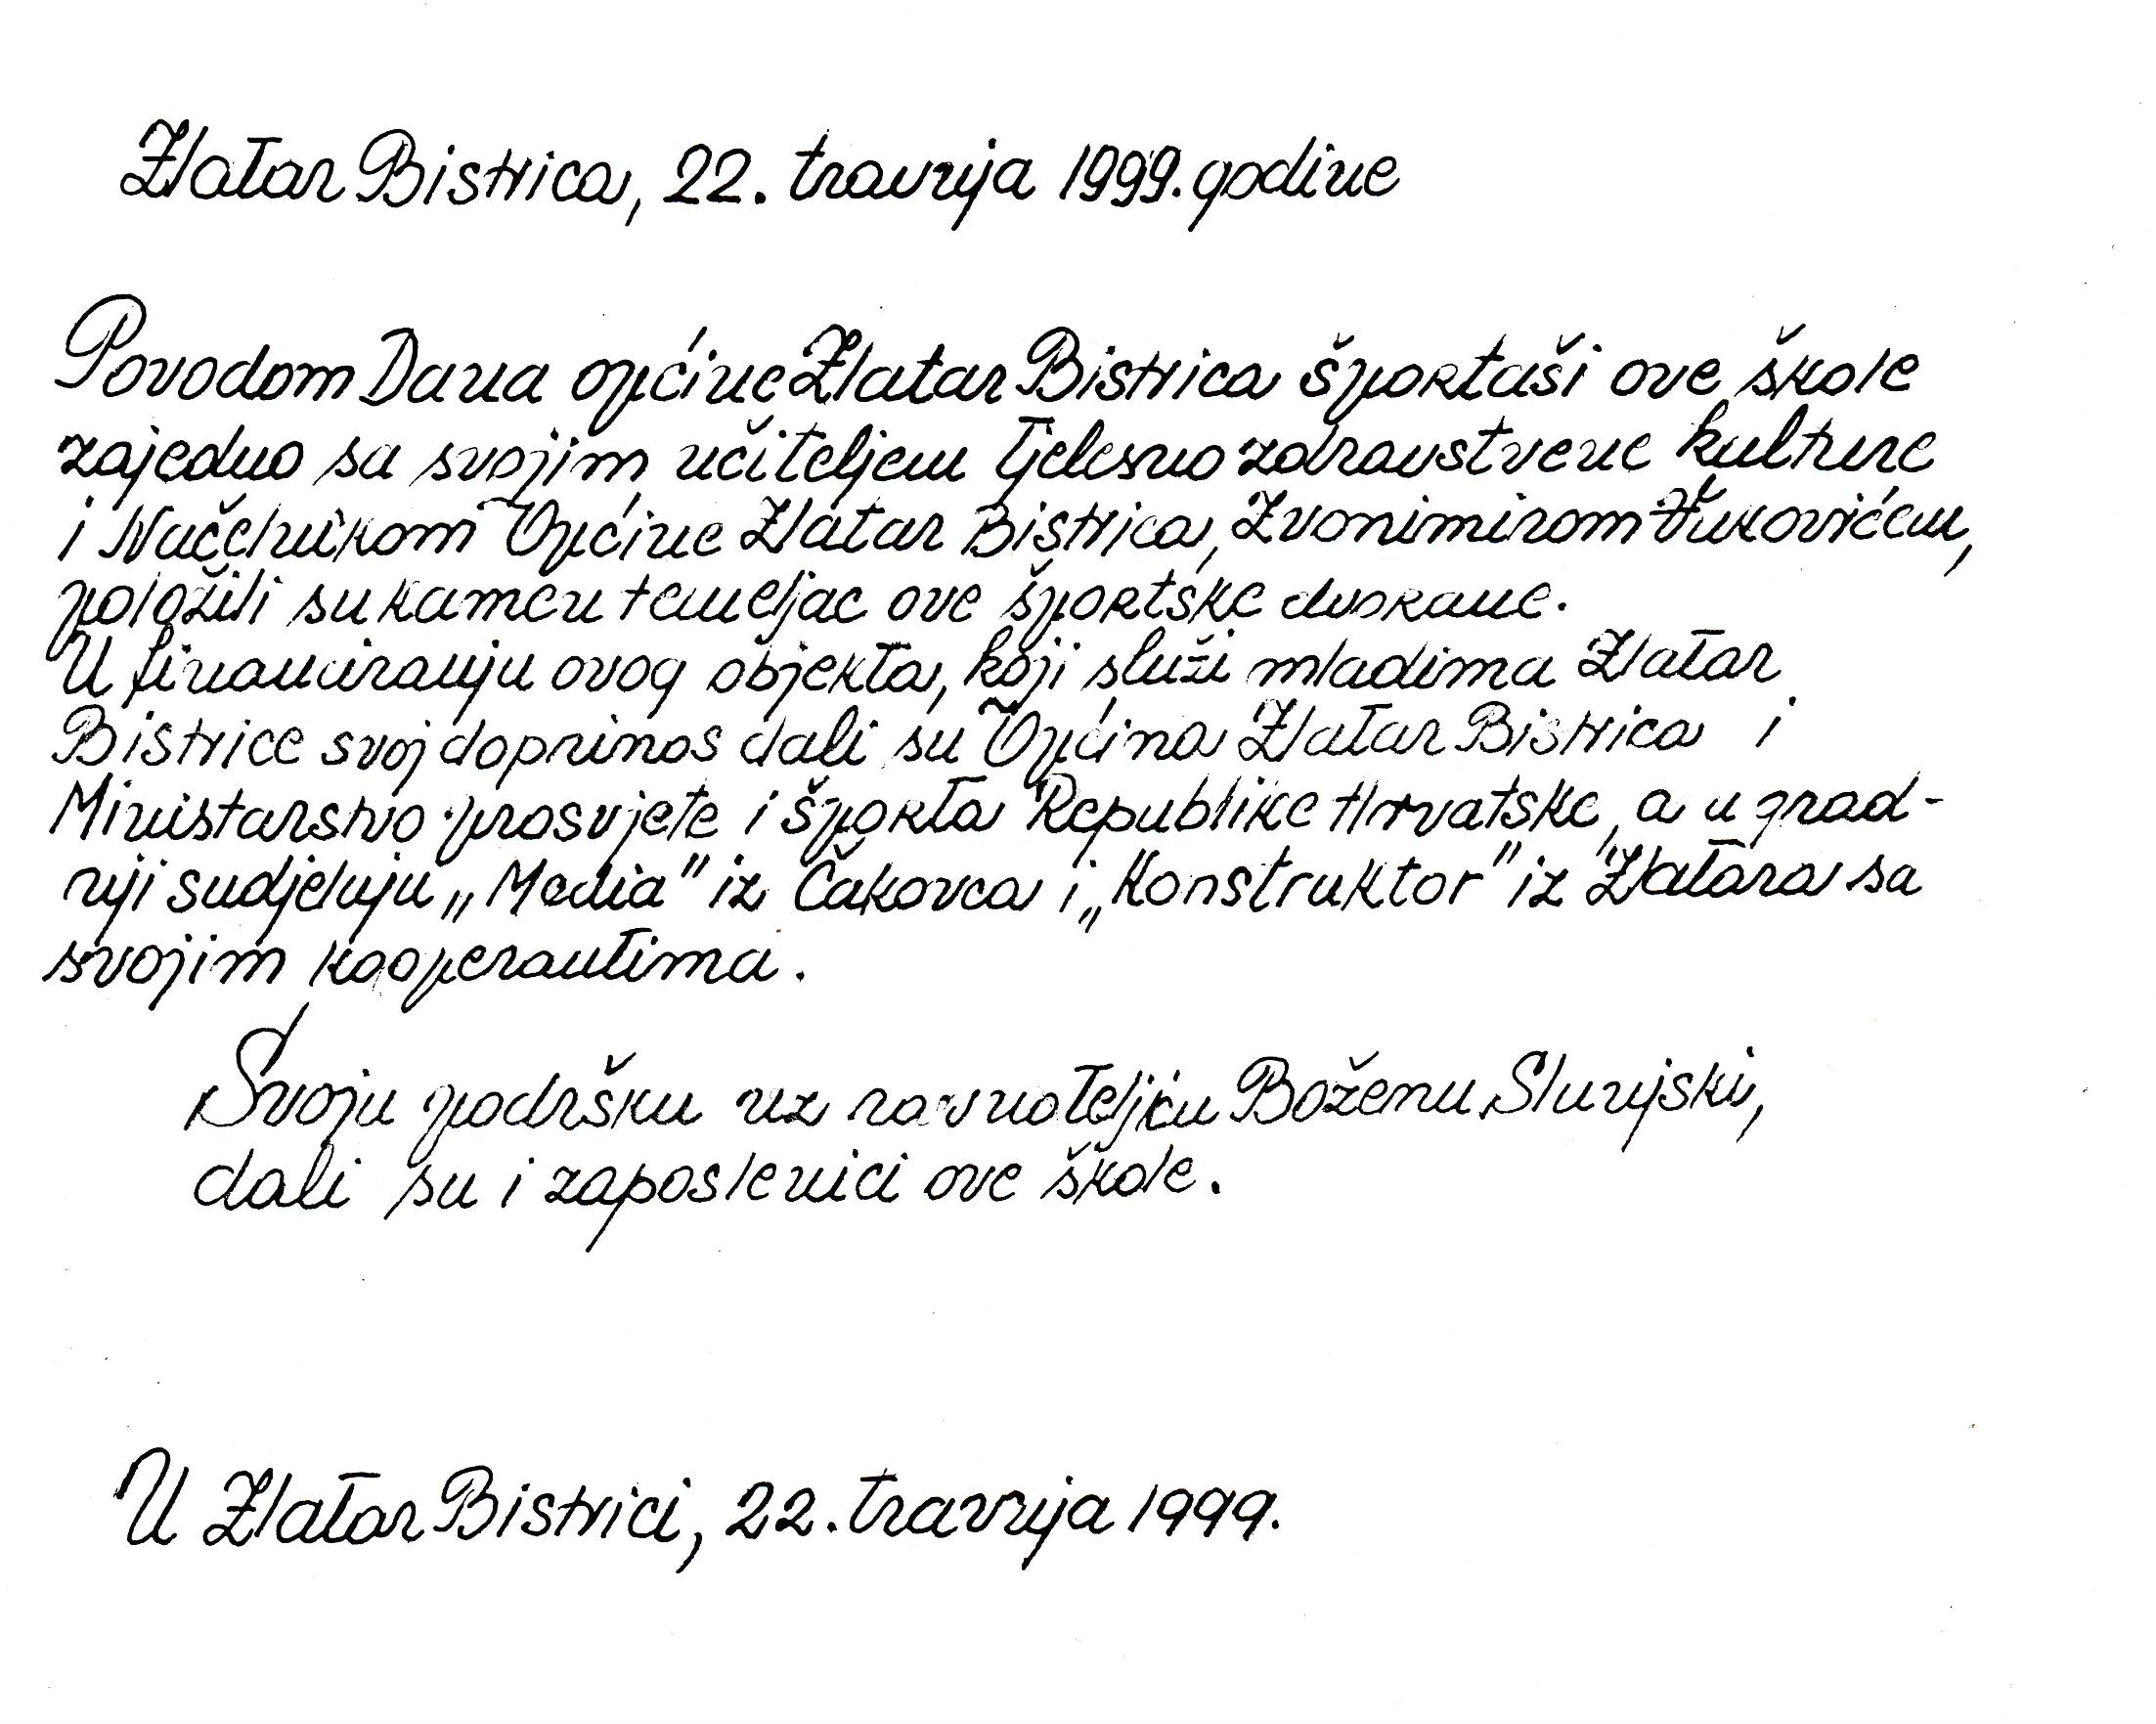 Zlatar Bistrica, 22. travnja 1999. godine
Povodom Dana općine Zlatar Bistrica športaši ove škole
zajedno sa svojim učiteljem tjelesno zdravstvene kulture
i Načelnikom Općine Zlatar Bistrica, Zvonimirom
položili su kamen temeljac ove športske dvorane.
U financiranju ovog objekta, koji služi mladima Zlatar
Bistrice svoj doprinos dali su Općina Zlatar Bistrica i
Ministarstvo prosvjete i športa Republike Hrvatske, a u grad-
nji sudjeluju „Media" iz Čakovca i „Konstruktor" iz Zlatara sa
svojim kooperantima.
Svoju podršku uz ravnateljicu Boženu Slunjski,
dali su i zaposlenici ove škole.
U Zlatar Bistrici, 22. travnja 1999.